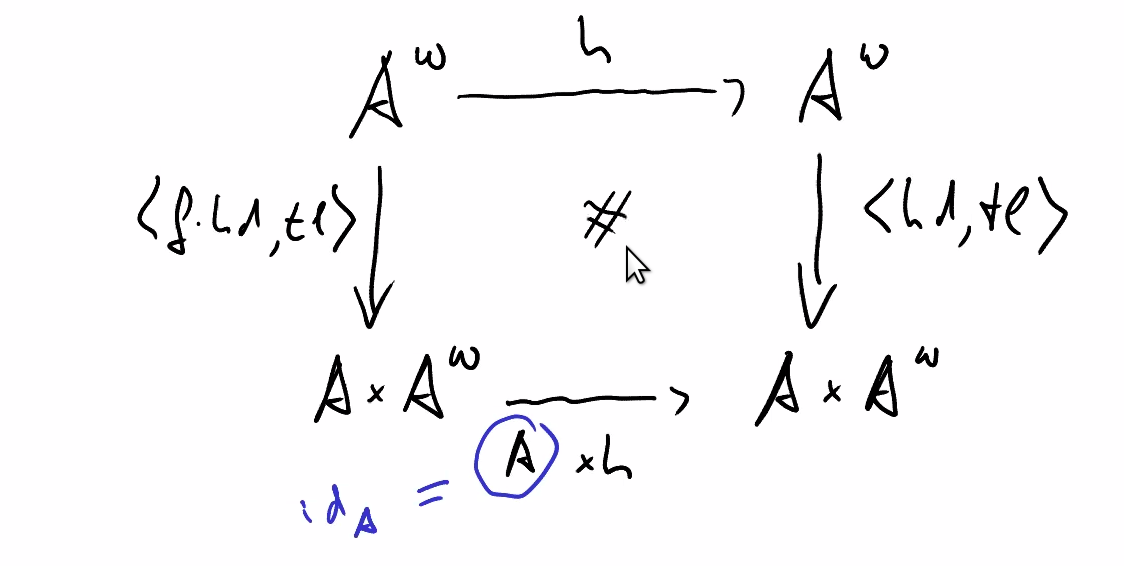 h
A^ω A^ω
<f·hd, tl> # <hd, tl>
A × A^ω A × A^ω
A × h
id_A =